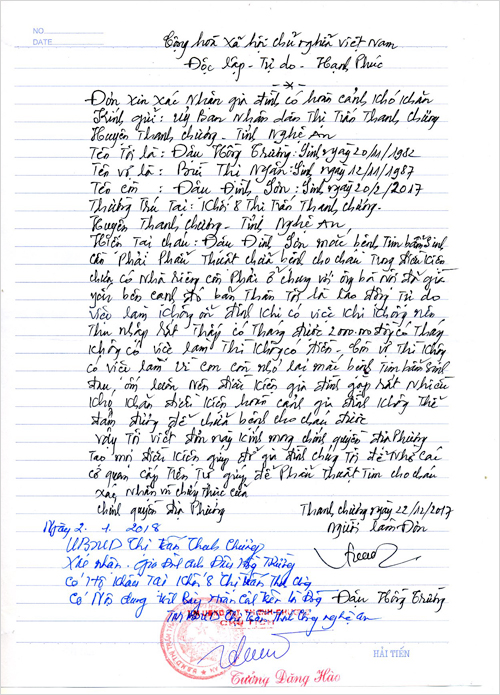 NO
DATE
Cộng hoà xã hội chủ nghĩa việt Nam
Độc lập - Tự do - Hạnh Phúc
Đơn xin xác Nhận gia đình có hoàn cảnh khó khăn
Kính gửi: Uỷ Ban Nhân dân Thị Trấn Thanh chương
Huyện Thanh chương - Tỉnh Nghệ An
Tên Tôi là: Đậu Hồng Trường: Sinh ngày 20/11/1982
Tên vợ là: Bùi Thị Ngân: Sinh ngày 12/11/1987
Tên con : Đậu Đình Sơn: Sinh ngày 20/2/2017
Thường Trú Tại: Khối 8 Thị Trấn Thanh chương
Huyện Thanh chương - Tỉnh Nghệ An
Hiện Tại cháu: Đậu Đình Sơn mắc bệnh Tim bẩm Sinh
cần Phải Phẫu Thuật chữa bệnh cho cháu Trong điều kiện
chưa có Nhà riêng còn Phải ở chung với ông bà Nội đã già
yếu bên cạnh đó bản Thân Tôi là lao động Tự do
việc làm không ổn định khi có việc khi không nên
Thu nhập rất Thấp có Tháng được 2000.000đ có Tháng
không có việc làm Thì không có tiền, còn vợ Thì không
có việc làm vì con còn nhỏ lại mắc bệnh Tim bẩm Sinh
đau ốm luôn Nên điều kiện gia đình gặp rất Nhiều
khó khăn điều kiện hoàn cảnh gia đình không Thể
đảm đương để chữa bệnh cho cháu được
vậy Tôi viết đơn này kính mong chính quyền địa Phương
Tạo mọi điều kiện giúp đỡ gia đình chúng Tôi để Nhờ các
cơ quan cấp Trên Trợ giúp để Phẫu Thuật Tim cho cháu
xác Nhận và chứng Thực của
chính quyền địa Phương
Thanh chương ngày 22/12/2017
Người làm Đơn
Ngày 2. 1. 2018
UBND Thị trấn Thanh Chương
Xác nhận. Gia đình anh Đậu Hồng Trường
Có Hộ khẩu Tại Khối 8 Thị trấn
Có Nội dung
Đậu Hồng Trường
TM UBND Thị trấn nghệ An
CHỦ TỊCH
Tưởng Đăng Hào
HẢI TIẾN